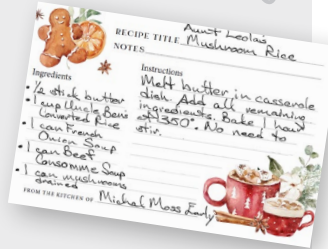 Aunt Leola's
RECIPE TITLE Mushroom Rice
NOTES
Ingredients
• 1/2 stick butter
• 1 cup Uncle Bens
Converted Rice
• 1 can French
Onion Soup
• 1 can Beef
Consomme Soup
• 1 can mushrooms
drained
Instructions
Melt butter in casserole
dish. Add all remaining
ingredients. Bake 1 hour
at 350°. No need to
stir.
FROM THE KITCHEN OF Michal Moss Early